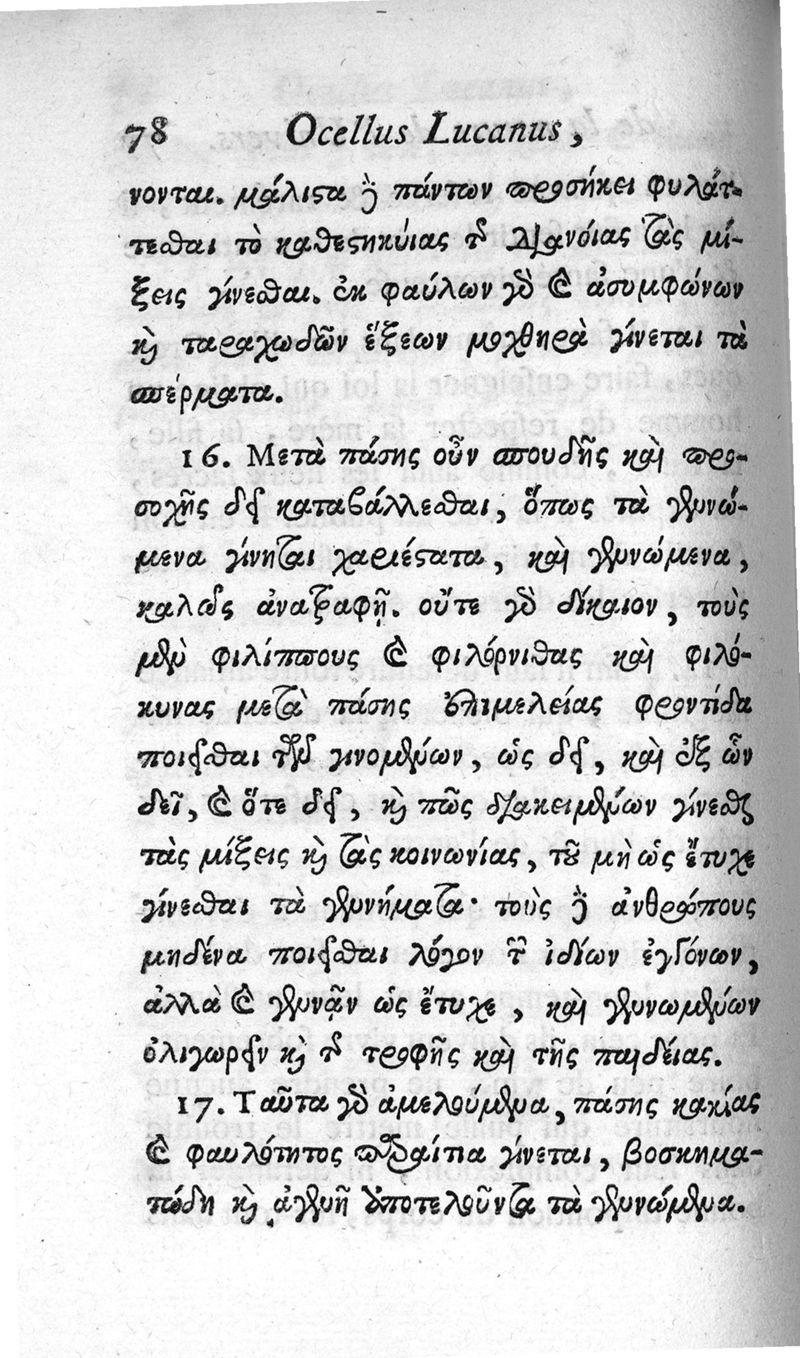 78 Ocellus Lucanus,
νονται. μάλιστα δὲ πάντων προσήκει φυλάτ-
τεσθαι τὸ καθεστηκυίας τῆς διανοίας τὰς μί-
ξεις γίνεσθαι. ἐκ φαύλων γὰρ καὶ ἀσυμφώνων
καὶ ταραχωδῶν ἕξεων μοχθηρὰ γίνεται τὰ
σπέρματα.
16. Μετὰ πάσης οὖν σπουδῆς καὶ προ-
σοχῆς δεῖ καταβάλλεσθαι, ὅπως τὰ γεννώ-
μενα γίνηται χαριέστατα, καὶ γεννώμενα,
καλῶς ἀναтραφῇ. οὔτε γὰρ δίκαιον, τοὺς
μὲν φιλίππους καὶ φιλόρνιθας καὶ φιλό-
κυνας μετὰ πάσης ἐπιμελείας φροντίδα
ποιεῖσθαι τῶν γινομένων, ὡς δεῖ, καὶ ἐξ ὧν
δεῖ, καὶ ὅτε δεῖ, καὶ πῶς διακειμένων γίνεσθαι
τὰς μίξεις καὶ τὰς κοινωνίας, τοῦ μὴ ὡς ἔτυχε
γίνεσθαι τὰ γεννήματα· τοὺς δὲ ἀνθρώπους
μηδένα ποιεῖσθαι λόγον τῶν ἰδίων ἐγγόνων,
ἀλλὰ καὶ γεννᾷν ὡς ἔτυχε, καὶ γεννωμένων
ὀλιγωρεῖν καὶ τῆς τροφῆς καὶ τῆς παιδείας.
17. Ταῦτα γὰρ ἀμελούμενα, πάσης κακίας
καὶ φαυλότητος παραίτια γίνεται, βοσκημα-
τώδη καὶ ἀγεννῆ ἀποτελοῦντα τὰ γεννώμενα.